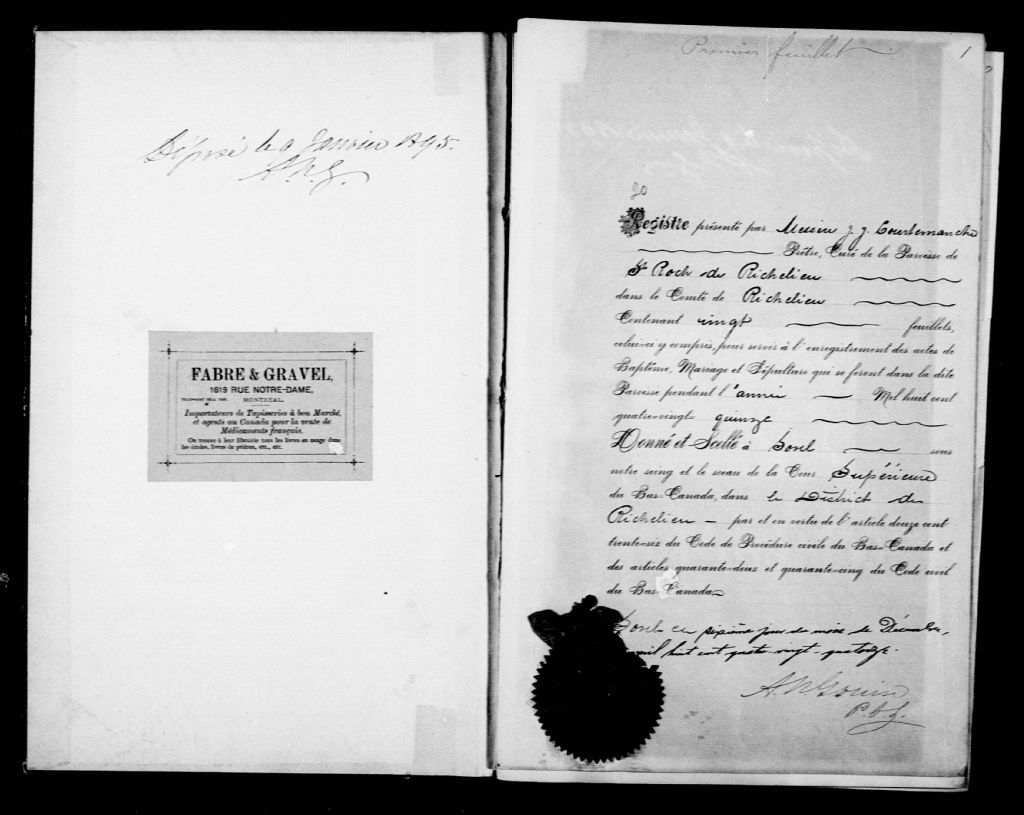 Déposé le 9 Janvier 1895.
A.N.G.
FABRE & GRAVEL,
1619 RUE NOTRE-DAME,
MONTREAL.
Importateurs de Tapisseries à bon Marché,
et agents au Canada pour la vente de
Médicaments français.
On trouve à leur librairie tous les livres en usage dans
les écoles, livres de prières, etc., etc.
Premier feuillet
1
Registre présenté par Messire J. J. Courtemanche
Prêtre, Curé de la Paroisse de
St Roch de Richelieu
dans le Comté de Richelieu
Contenant vingt feuillets,
celui-ci y compris, pour servir à l'enregistrement des actes de
Baptême, Mariage et Sépulture qui se feront dans la dite
Paroisse pendant l'année Mil huit cent
quatre-vingt quinze
Donné et Scellé à Sorel sous
notre seing et le sceau de la Cour Supérieure
du Bas-Canada, dans le District de
Richelieu par et en vertu de l'article douze cent
trente-six du Code de Procédure civile du Bas-Canada et
des articles quarante-deux et quarante-cinq du Code civil
du Bas-Canada
Sorel ce sixième jour du mois de Décembre,
mil huit cent quatre-vingt-quatorze.
A. N. Gouin
P.C.S.